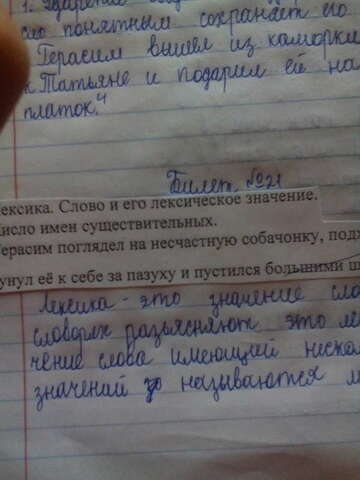 1. Ударение
сло понятным сохраняет его
Герасим вышел из каморки
к Татьяне и подарил ей на
платок."
Билет №21
ексика. Слово и его лексическое значение.
исло имен существительных.
ерасим поглядел на несчастную собачонку, подх
унул её к себе за пазуху и пустился большими ш
Лексика - это значение сло
словарях разъясняют это ле
чение слова имеющий неско
значений то называются м